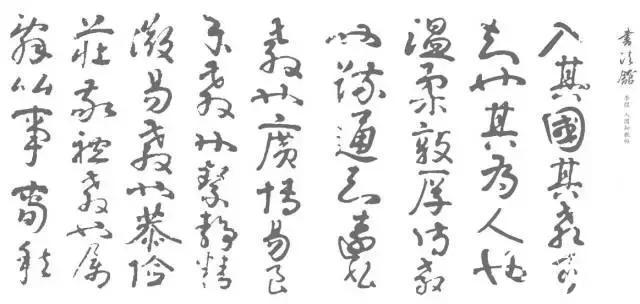 書法館
入国知教帖
入其國其教可
知也其為人也
溫柔敦厚詩教
也疏通知遠書
教也廣博易良
樂教也絜靜精
微易教也恭儉
莊敬禮教也屬
辭比事春秋